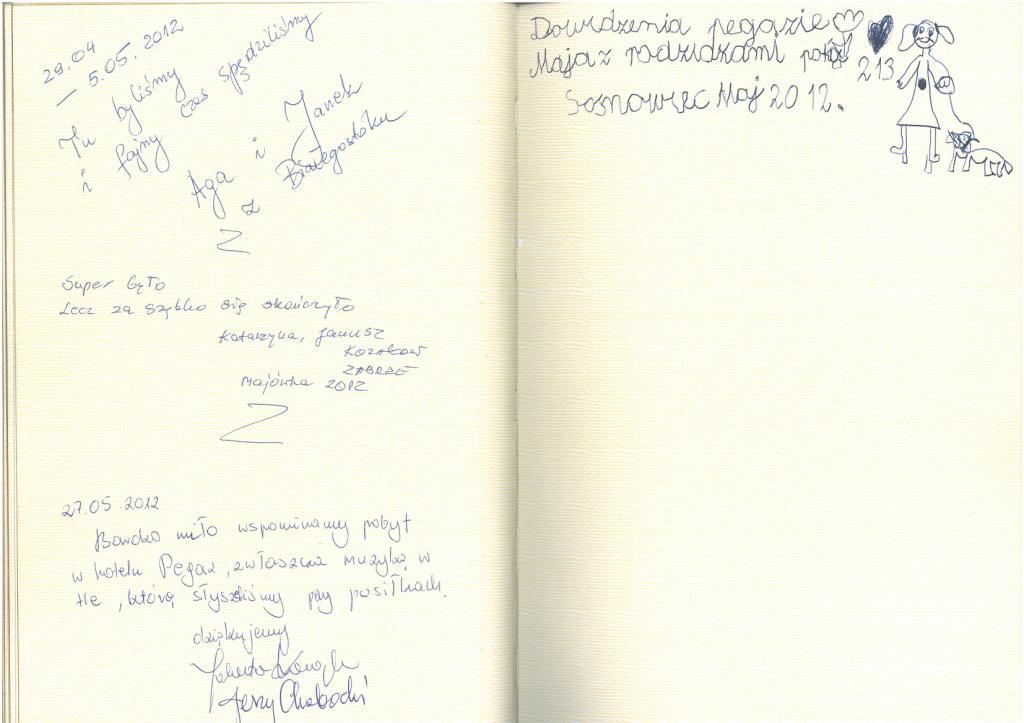 29.04
– 5.05.2012
Tu byliśmy
i fajny czas spędziliśmy
Aga i Janek
z Białegostoku
Super było
Lecz za szybko się skończyło
Katarzyna, Janusz
ZABRZE
Majówka 2012
27.05.2012
Bardzo miło wspominamy pobyt
w hotelu Pegaz, zwłaszcza muzykę w
tle, którą słyszeliśmy przy posiłkach.
dziękujemy
Jerzy
Dowidzenia pegazie
Maja z rodzidzami pokój 213
Sosnowiec Maj 2012.